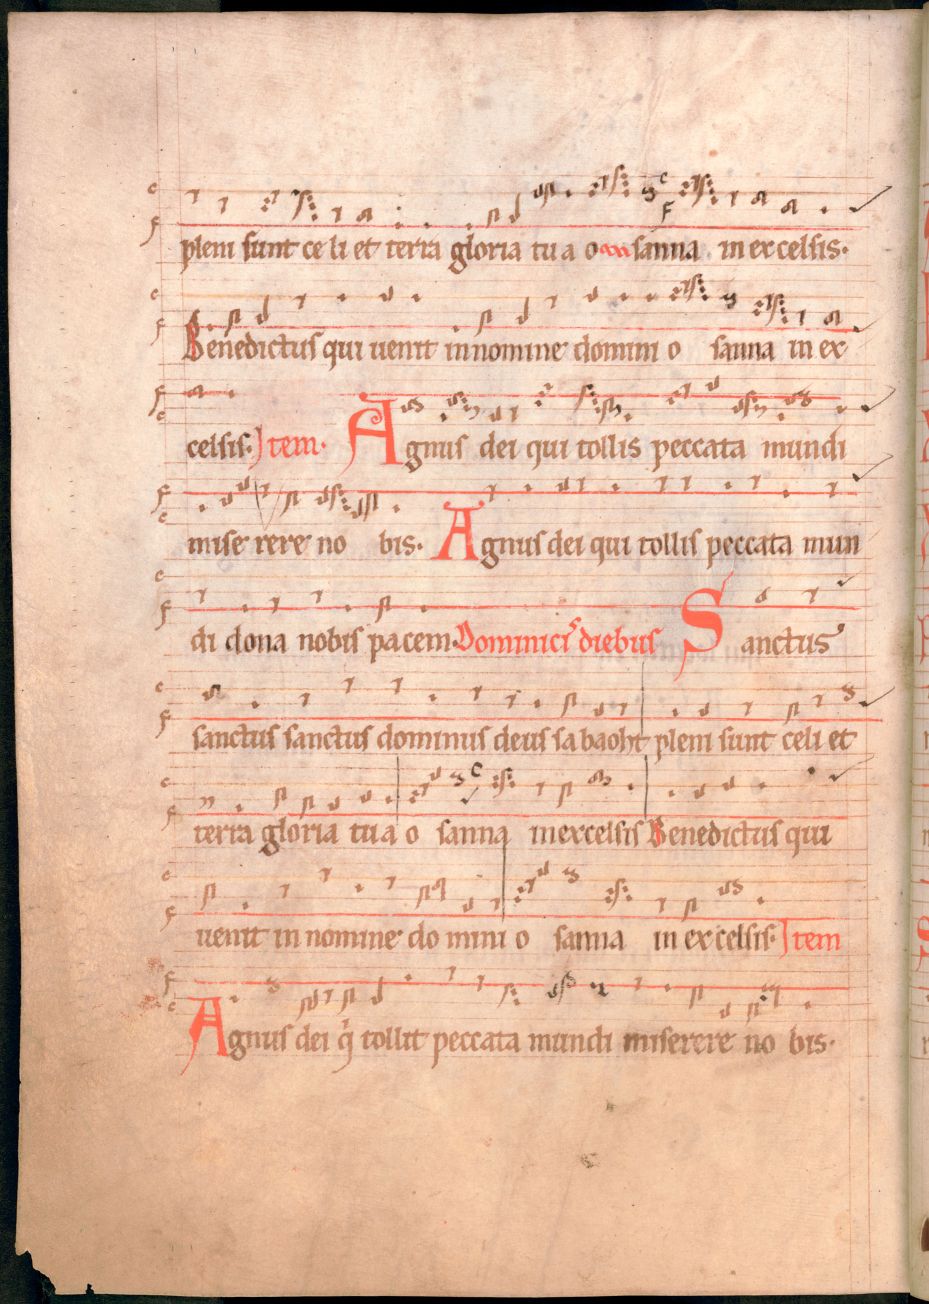 pleni sunt celi et terra gloria tua osanna in excelsis.
Benedictus qui uenit in nomine domini osanna in ex
celsis. Item. Agnus dei qui tollis peccata mundi
miserere nobis. Agnus dei qui tollis peccata mun
di dona nobis pacem. Dominicis diebus Sanctus
sanctus sanctus dominus deus sabaoht pleni sunt celi et
terra gloria tua osanna in excelsis Benedictus qui
uenit in nomine domini osanna in excelsis. Item
Agnus dei q̇ tollit peccata mundi miserere nobis.